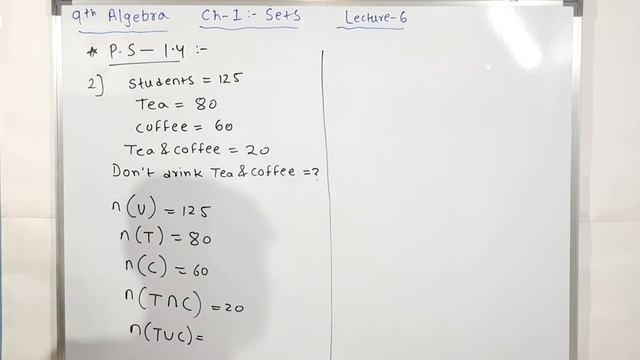 9th Algebra Ch-1:- Sets Lecture-6
* P.S-1.4 :-
2] Students = 125
Tea = 80
Coffee = 60
Tea & coffee = 20
Don't drink Tea & coffee = ?
n(U) = 125
n(T) = 80
n(C) = 60
n(T∩C) = 20
n(T∪C) =